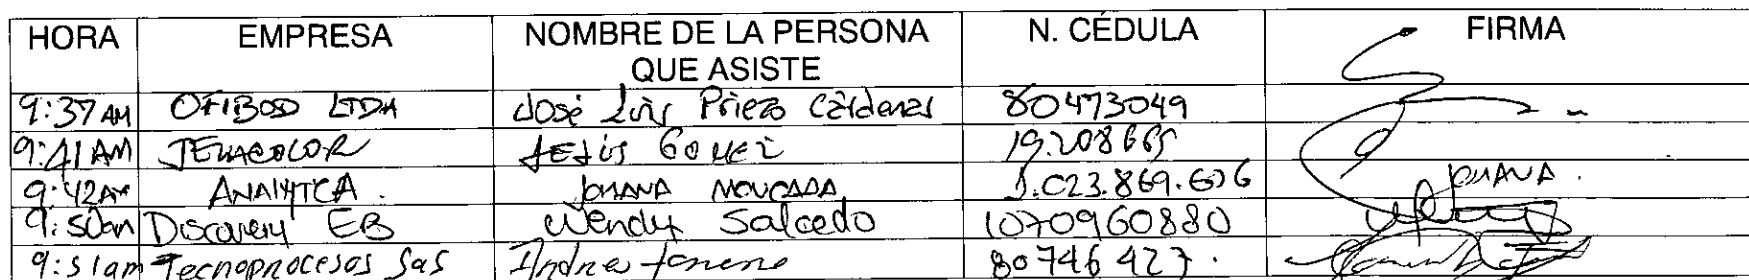 HORA EMPRESA NOMBRE DE LA PERSONA QUE ASISTE N. CÉDULA FIRMA
9:37 AM OFIBOD LTDA José Luis Prieto Cárdenas 80473049
9:41 AM JESÚS GOMEZ 19.208665
9:42AM ANALYTICA. JOHANA MONCADA 1.023.869.606 JOHANA.
9:50am Discovery EB Wendy Salcedo 1070960880
9:51am Tecnoprocesos Sas Andres 80746427.